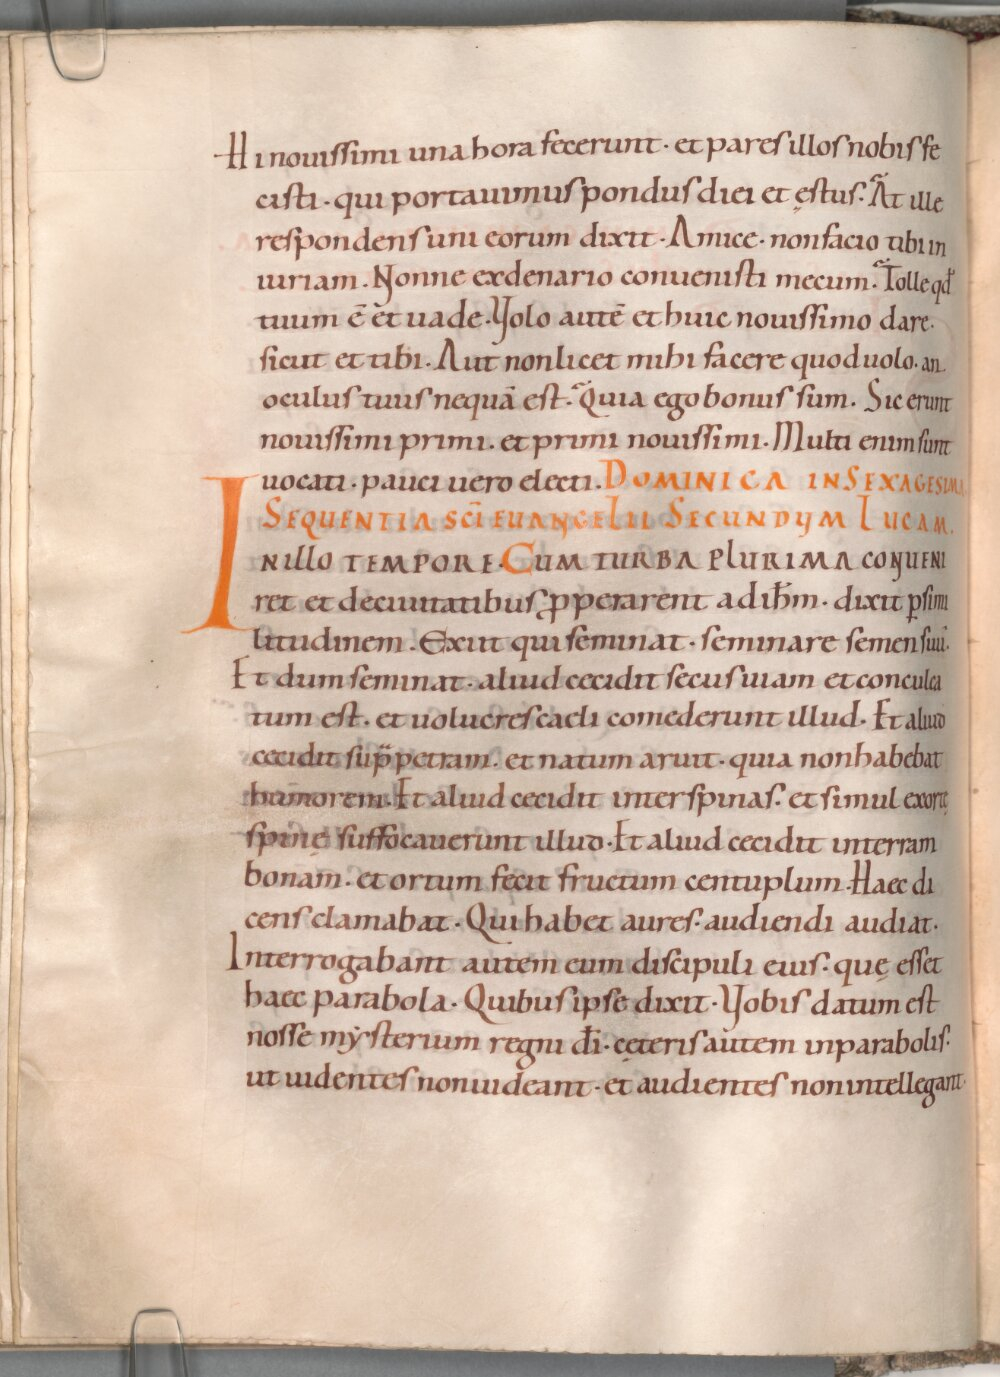 Hi nouissimi una hora fecerunt · et pares illos nobis fe
cisti · qui portauimus pondus diei et ęstus · At ille
respondens uni eorum dixit · Amice · non facio tibi in
iuriam · Nonne ex denario conuenisti mecum · Tolle qđ
tuum ē et uade · Volo autē et huic nouissimo dare ·
sicut et tibi · Aut non licet mihi facere quod uolo · an
oculus tuus nequā est · Quia ego bonus sum · Sic erunt
nouissimi primi · et primi nouissimi · Multi enim sunt
uocati · pauci uero electi · DOMINICA IN SEXAGESIMA
SEQUENTIA SC̄I EUANGELII SECUNDUM LUCAM ·
IN ILLO TEMPORE · CUM TURBA PLURIMA CONUENI
ret et de ciuitatibus ꝓperarent ad ihm̄ · dixit ꝑ simi
litudinem · Exiit qui seminat · seminare semen suū ·
Et dum seminat · aliud cecidit secus uiam et conculca
tum est · et uolucres caeli comederunt illud · Et aliud
cecidit sup̄ petram · et natum aruit · quia non habebat
humorem · Et aliud cecidit inter spinas · et simul exortę
spinę suffocauerunt illud · Et aliud cecidit in terram
bonam · et ortum fecit fructum centuplum · Haec di
cens clamabat · Qui habet aures · audiendi audiat ·
Interrogabant autem eum discipuli eius · quę esset
haec parabola · Quibus ipse dixit · Vobis datum est
nosse mẏsterium regni dī · cęteris autem in parabolis ·
ut uidentes non uideant · et audientes non intellegant ·